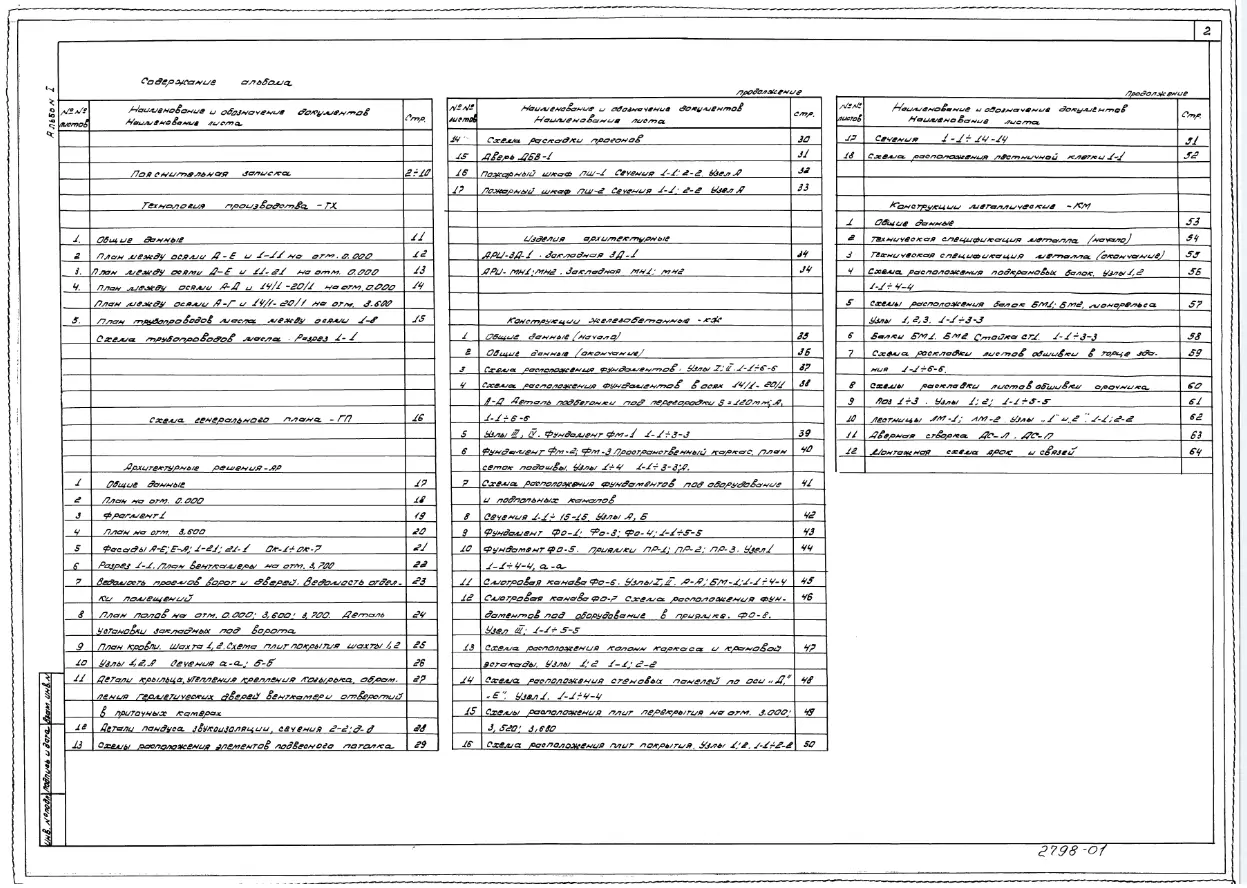 2
Альбом I
Содержание альбома
№№ листов
Наименование и обозначение документов
Наименование листа
Стр.
Пояснительная записка 2÷10
Технология производства - ТХ
1. Общие данные 11
2 План между осями А-Е и 1-11 на отм. 0.000 12
3. План между осями А-Е и 11-21 на отм. 0.000 13
4. План между осями А-Д и 14/1-20/1 на отм. 0.000 14
План между осями А-Г и 14/1-20/1 на отм. 3.600
5. План трубопроводов масла между осями 1-8 15
Схема трубопроводов масла. Разрез 1-1
Схема генерального плана - ГП 16
Архитектурные решения - АР
1 Общие данные 17
2 План на отм. 0.000 18
3 Фрагмент 1 19
4 План на отм. 3.600 20
5 Фасады А-Е; Е-А; 1-21; 21-1 ОК-1÷ОК-7 21
6 Разрез 1-1. План венткамеры на отм. 3,700 22
7 Ведомость проемов ворот и дверей. Ведомость отдел- 23
ки помещений
8 План полов на отм. 0.000; 3,600; 3,700. Деталь 24
установки закладных под ворота
9 План кровли. Шахта 1,2. Схема плит покрытия шахты 1,2 25
10 Узлы 1,2,3 Сечения а-а; б-б 26
11 Детали крыльца, утепления крепления козырька, обрам- 27
ления герметических дверей венткамеры отверстий
в приточных камерах
12 Детали пандуса звукоизоляции, сечения 2-2; д-д 28
13 Схемы расположения элементов подвесного потолка 29
продолжение
№№ листов
Наименование и обозначение документов
Наименование листа
Стр.
14 Схема раскладки прогонов 30
15 Дверь ДБВ-1 31
16 Пожарный шкаф ПШ-1 Сечения 1-1; 2-2 Узел А 32
17 Пожарный шкаф ПШ-2 Сечения 1-1; 2-2 Узел А 33
Изделия архитектурные
АРИ-ЗД-1. Закладная ЗД-1 34
АРИ-МН1; МН2. Закладная МН1; МН2 34
Конструкции железобетонные - КЖ
1 Общие данные (начало) 35
2 Общие данные (окончание) 36
3 Схема расположения фундаментов. Узлы I; II. 1-1÷6-6 37
4 Схема расположения фундаментов в осях 14/1-20/1 38
А-Д Деталь подбетонки под перегородки S=120мм; А,
1-1÷6-6
5 Узлы III, IV. Фундамент ФМ-1 1-1÷3-3 39
6 Фундамент ФМ-2; ФМ-3 Пространственный каркас, план 40
сеток подошвы. Узлы 1÷4 1-1÷3-3; А.
7 Схема расположения фундаментов под оборудование 41
и подпольных каналов
8 Сечения 1-1÷15-15. Узлы А, Б 42
9 Фундамент ФО-1; ФО-3; ФО-4; 1-1÷5-5 43
10 Фундамент ФО-5. Приямки ПР-1; ПР-2; ПР-3. Узел 1 44
1-1÷4-4, а-а
11 Смотровая канава ФО-6. Узлы I, II. А-А; БМ-1; 1-1÷4-4 45
12 Смотровая канава ФО-7 Схема расположения фун- 46
даментов под оборудование в приямке. ФО-8.
Узел III; 1-1÷5-5
13 Схема расположения колонн каркаса и крановой 47
эстакады. Узлы 1; 2 1-1; 2-2
14 Схема расположения стеновых панелей по оси „Д," 48
„Е". Узел 1. 1-1÷4-4
15 Схемы расположения плит перекрытия на отм. 3.000; 49
3,520; 3,680
16 Схема расположения плит покрытия. Узлы 1; 2. 1-1÷2-2 50
Продолжение
№№ листов
Наименование и обозначение документов
Наименование листа
Стр.
17 Сечения 1-1÷14-14 51
18 Схема расположения лестничной клетки 1-1 52
Конструкции металлические - КМ
1 Общие данные 53
2 Техническая спецификация металла (начало) 54
3 Техническая спецификация металла (окончание) 55
4 Схема расположения подкрановых балок. Узлы 1,2 56
1-1÷4-4
5 Схемы расположения балок БМ1; БМ2, монорельса 57
Узлы 1, 2, 3. 1-1÷3-3
6 Балки БМ1. БМ2 Стойка СТ1. 1-1÷3-3 58
7 Схема раскладки листов обшивки в торце зда- 59
ния 1-1÷6-6.
8 Схемы раскладки листов обшивки арочника 60
9 Поз 1÷3. Узлы 1; 2; 1-1÷5-5 61
10 Лестницы ЛМ-1; ЛМ-2 Узлы „1" и „2". 1-1; 2-2 62
11 Дверная створка ДС-Л. ДС-П 63
12 Монтажная схема арок и связей 64
Инв.№ подл. Подпись и дата Взам. инв.№
2798-01